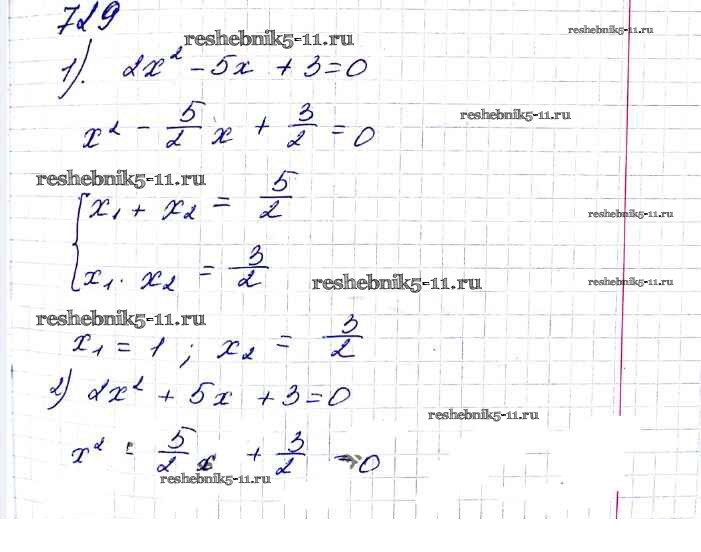 729
reshebnik5-11.ru
reshebnik5-11.ru
1). 2x² - 5x + 3 = 0
reshebnik5-11.ru
x² - 5/2 x + 3/2 = 0
reshebnik5-11.ru
{ x₁ + x₂ = 5/2
reshebnik5-11.ru
x₁ · x₂ = 3/2
reshebnik5-11.ru
reshebnik5-11.ru
reshebnik5-11.ru
x₁ = 1 ; x₂ = 3/2
2) 2x² + 5x + 3 = 0
reshebnik5-11.ru
x² 5/2 x + 3/2 = 0
reshebnik5-11.ru